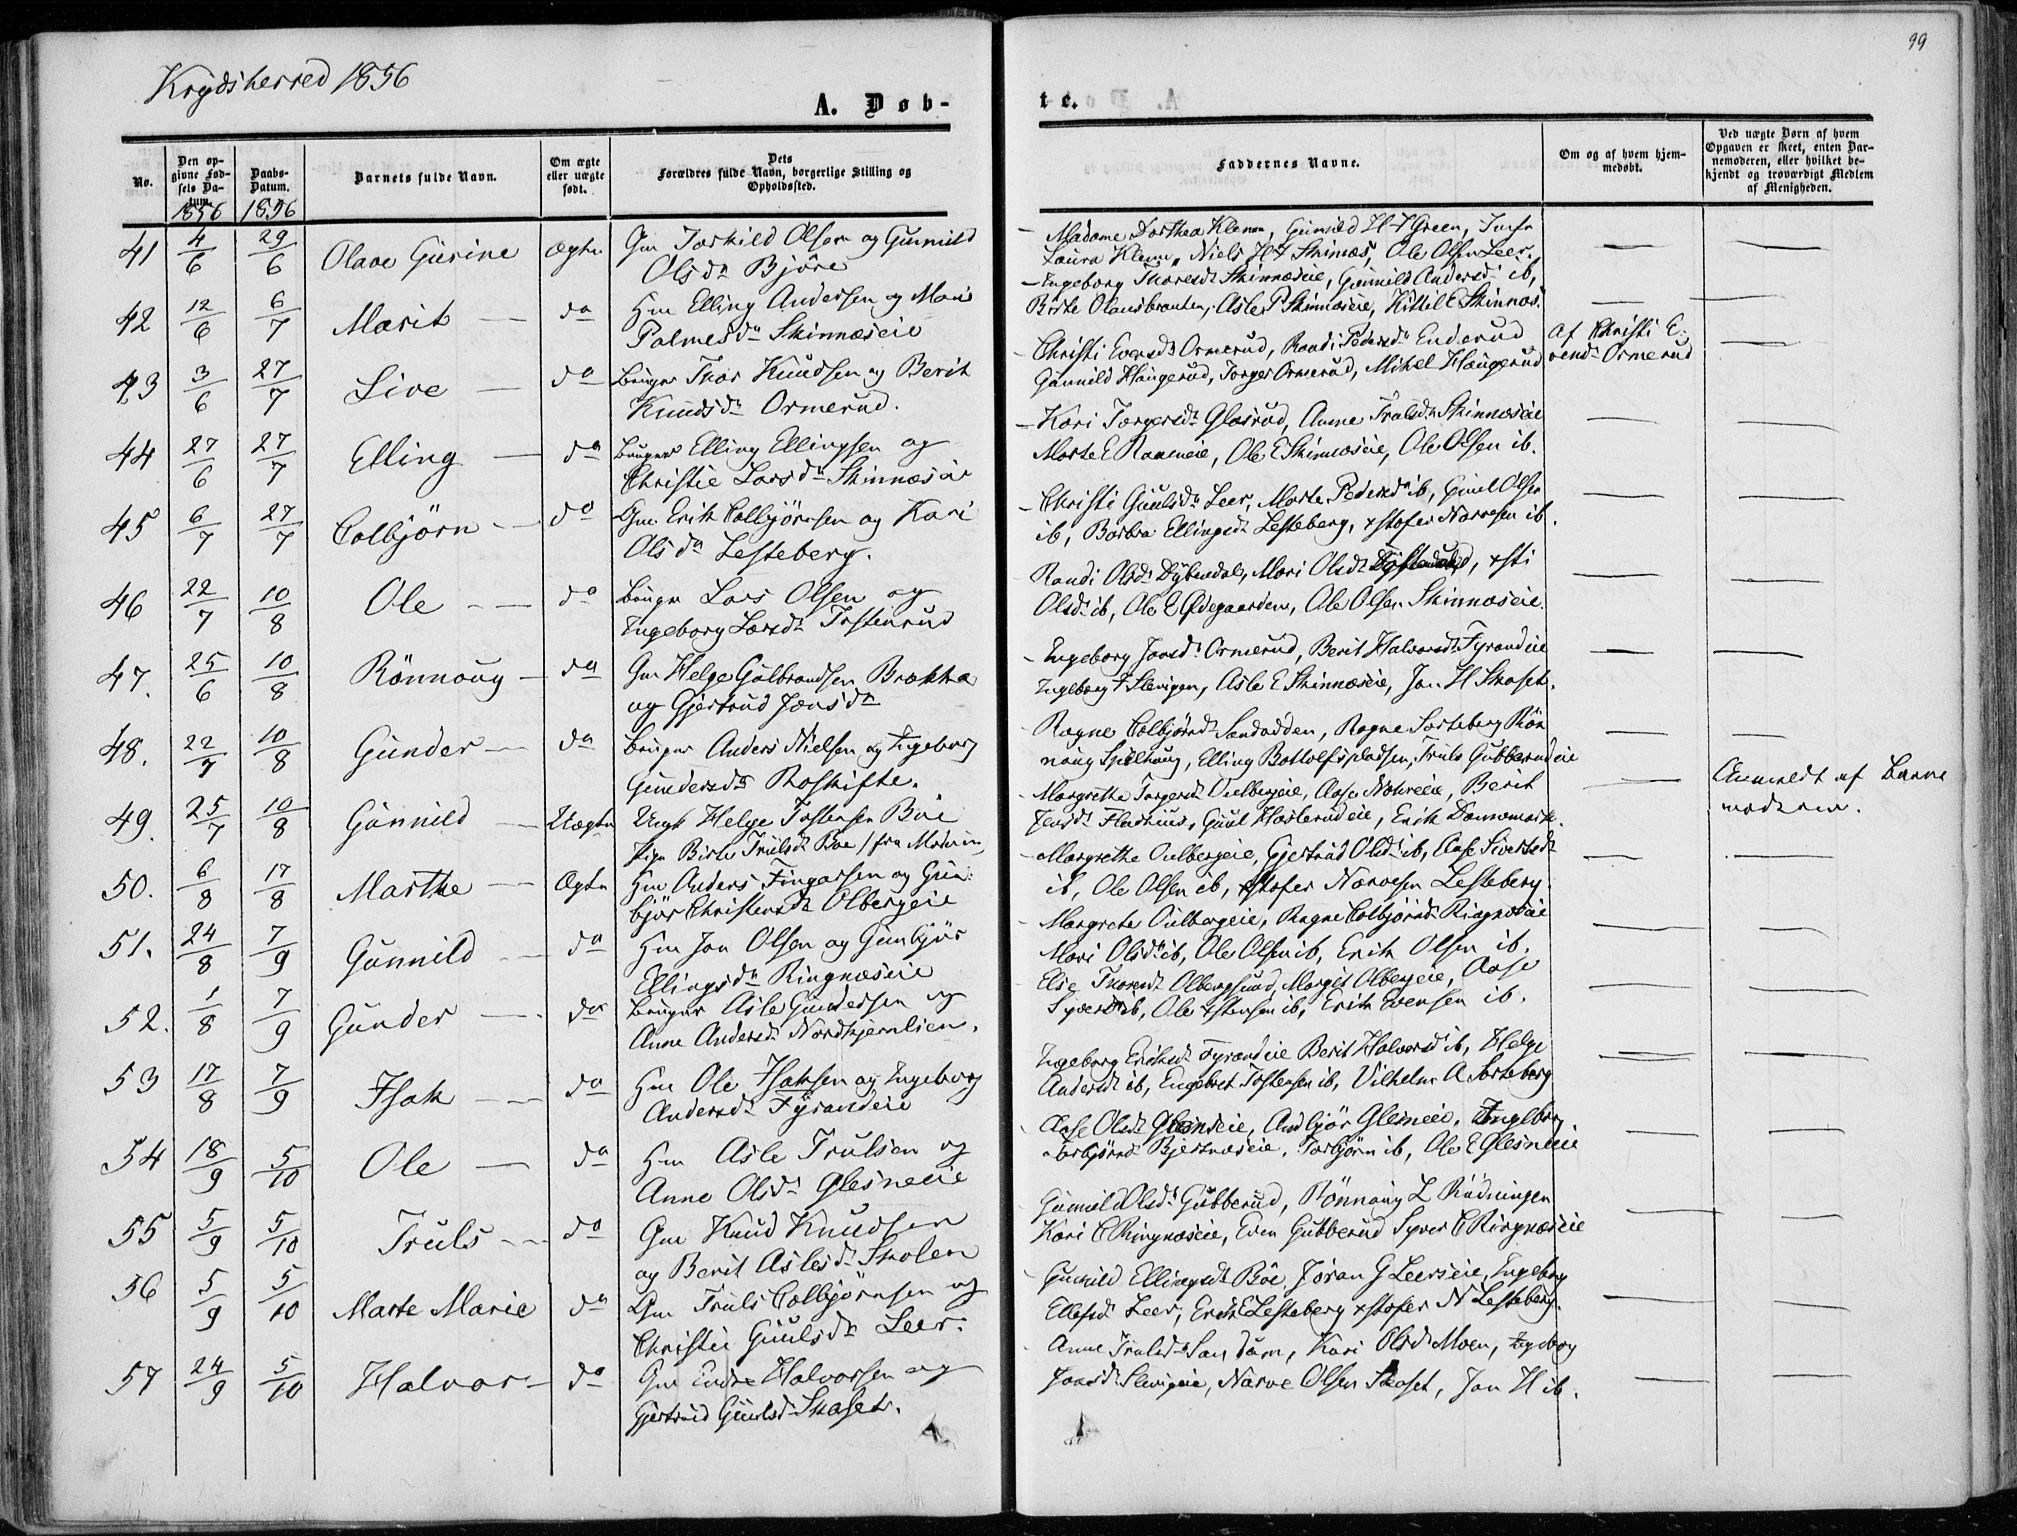 99
Krydsherred 1856
A. Døb-
te.
No.
Den op-
givne Fød-
sels Da-
tum.
1856
Daabs-
Datum.
1856
Barnets fulde Navn.
Om ægte
eller uægte
født.
Dets
Forældres fulde Navn, borgerlige Stilling og
Opholdssted.
Faddernes Navne.
Om og af hvem hjem-
medøbt.
Ved uægte Børn af hvem
Opgaven er skeet, enten Bar-
nemoderen, eller hvilket be-
kjendt og troværdigt Medlem
af Menigheden.
41 4/6 29/6 Olave Gurine Ægte Gm Torkild Olsen og Gunnild
Olsdr Bjøre
Madame Dorthea Klemm, Gunnild H T Green, Jomfr
Laura Klemm, Niels H T Skinnæs, Ole Olsen Leer.
42 12/6 6/7 Marit do Hm Elling Andersen og Mari
Palmesdr Skinnæseie
Ingeborg Thoresdr Skinnæseie, Gunnild Andersdr ib,
Birte Olausbraaten, Asle P Skinnæseie, Kittil E Skinnæs.
43 3/6 27/7 Live do Bruger Thor Knudsen og Berit
Knudsdr Ormerud.
Christi Evensdr Ormerud, Randi Pedersdr Enderud
Gunnild Haugerud, Torger Ormerud, Mikel Haugerud
Af Christi E-
vensdr Ormerud
44 27/6 27/7 Elling do Bruger Elling Ellingsen og
Christie Larsdr Skinnæseie
Kari Torgersdr Glasrud, Anne Trulsdr Skinnæseie
Marte E Raameie, Ole E Skinnæseie, Ole Olsen ib.
45 6/7 27/7 Colbjörn do Gm Erik Colbjørnsen og Kari
Olsdr Lesteberg.
Christi Guulsdr Leer, Marte Pedersdr ib, Guul Olsen
ib, Barbra Ellingsdr Lesteberg, xstofer Narvesen ib.
46 22/7 10/8 Ole do Bruger Lars Olsen og
Ingeborg Larsdr Tostenrud
Randi Olsdr Dybendal, Mari Olsdr, xsti
Olsdr ib, Ole E Ødegaarden, Ole Olsen Skinnæseie.
47. 25/6 10/8 Rönnoug do Gm Helge Gulbrandsen Brakka
og Gjertrud Jonsdr
Ingeborg Jonsdr Ormerud, Berit Halvorsdr Fyrandeie
Ingeborg T Slevigen, Asle E Skinnæseie, Jon H Skaset.
48. 22/7 10/8 Gunder do Bruger Anders Nielsen og Ingeborg
Gundersdr Roskifte.
Ragne Colbjørnsdr Sandodden, Ragne Sorteberg Rön
noug Spilhaug, Elling Bottolfspladsen, Truls Gubberudeie
49. 25/7 10/8 Gunnild Uægte Ungk Helge Tostensen Böe
Pige Birte Trulsdr Boe / fra Moderen
Margrethe Torgersdr Oulbergeie, Aase Nohreeie, Berit
Jensdr Fladhuus, Guul Haslerudeie, Erik Dannemark.
Anmeldt af Barne
moderen.
50. 6/8 17/8 Marthe Ægte Hm Anders Fingarsen og Gun-
björ Christensdr Olbergeie
Margrethe Oulbergeie, Gjertrud Olsdr ib, Aase Sivertsdr
ib, Ole Olsen ib, xstofer Narvesen Lesteberg
51. 24/8 7/9 Gunnild do Hm Jon Olsen og Gunbjör
Ellingsdr Ringnæseie
Margrete Oulbergeie, Ragne Colbjörnsdr Ringnæseie
Mari Olsdr ib, Ole Olsen ib, Erik Olsen ib.
52. 1/8 7/9 Gunder do Bruger Asle Gundersen og
Anne Andersdr Nordhjernlien.
Else Thoresdr Olbergsund, Margit Olbergeie, Aase
Syversdr ib, Ole xstensen ib, Erik Evensen ib.
53 17/8 7/9 Isak do Hm Ole Isaksen og Ingeborg
Andersdr Fyrandeie
Ingeborg Eriksdr Fyrandeie Berit Halvorsdr ib, Helge
Andersdr ib, Engebret Tostensen ib, Vilhelm A Sorteberg
54 18/9 5/10 Ole do Hm Asle Trulsen og
Anne Olsdr Glesneeie
Aase Olsdr Glesneeie, Andbjör Glesneie, Ingeborg
Torbjörnsdr Bjertnæseie, Torbjörn ib, Ole E Glesneeie
55 5/9 5/10 Truls do Gm Knud Knudsen
og Berit Aslesdr Skolen
Gunnild Olsdr Gubberud, Rönnoug L Rudningen
Kari C Ringnæseie, Even Gubberud Syver C Ringnæseie
56 5/9 5/10 Marte Marie do Gm Truls Colbjörnsen og
Christie Guulsdr Leer.
Gunild Ellingsdr Böe, Jöran G Leerseie, Ingeborg
Ellefsdr Leer, Erik E Lesteberg xstofer N Lesteberg.
57 24/9 5/10 Halvor do Gm Endre Halvorsen og
Gjertrud Guulsdr Skaset.
Anne Trulsdr Sandum, Kari Olsdr Moen, Ingeborg
Jonsdr Slevigeie, Narve Olsen Skaset, Jon H ib.